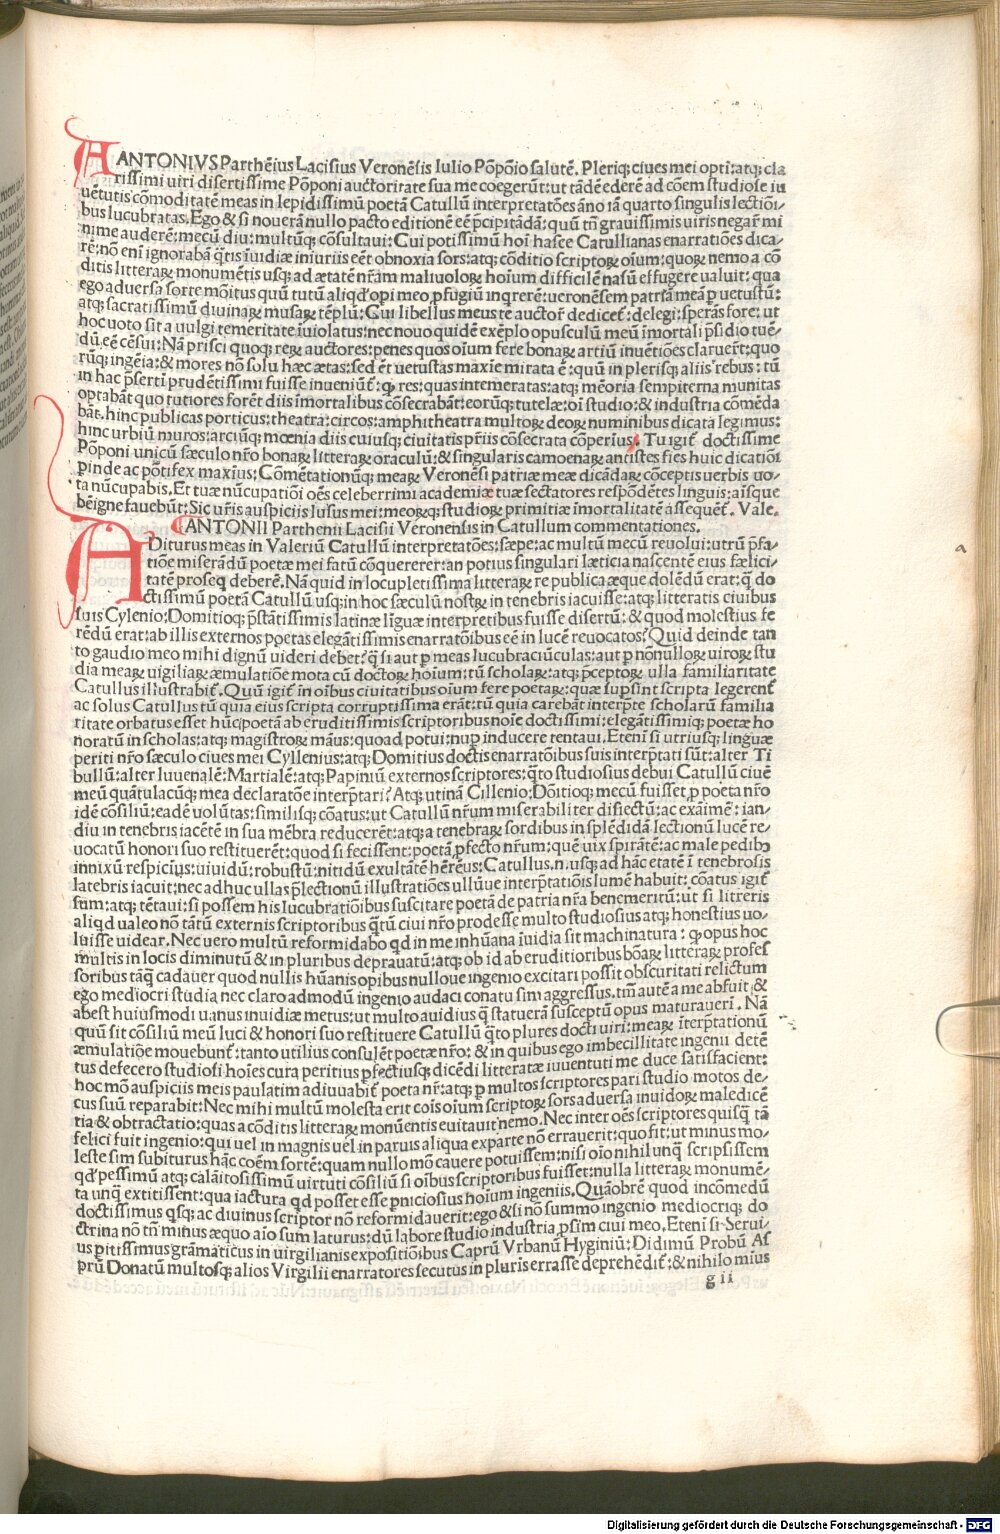 ANTONIVS Parthēius Lacisius Veronēsis Iulio Pōpōio salutē. Pleriq; ciues mei opti: atq; cla
rissimi uiri disertissime Pōponi auctoritate sua me coegerūt: ut tādē ederē ad cōem studiose iu
uētutis cōmoditatē meas in lepidissimū poetā Catullū interpretatōes āno iā quarto singulis lectiōi
bus lucubratas. Ego & si nouerā nullo pacto editionē eē p̄cipitādā: quū tn̄ grauissimis uiris negar̄ mi
nime auderē: mecū diu: multūq; cōsultaui: Cui potissimū hoī hasce Catullianas enarratiōes dica/
rē: nō enī ignorabā q̄tis īuidiæ iniuriis eēt obnoxia sors: atq; cōditio scriptoꝝ oīum: quoꝝ nemo a cō
ditis litteraꝝ monumētis usq; ad ætatē nr̄am maliuoloꝝ hoīum difficilē nasū effugere ualuit: qua
ego aduersa sorte mōitus quū tutū aliqd' opi meo p̱fugiū inq̱rerē: ueronēsem patrīā meā p̱ uetustū:
atq; sacratissimū diuinaꝝ musaꝝ tēplū: Cui libellus meus te auctor̄ dedicet᷑: delegi: sperās fore: ut
hoc uoto sit a uulgi temeritate īuiolatus: nec nouo quidē exēplo opusculū meū īmortali p̄sidio tuē/
dū eē cēsui: Nā prisci quoq; reꝝ auctores: penes quos oīum fere bonaꝝ artiū inuētiōes claruert̄: quo
rūq; ingēia: & mores nō solū hæc ætas: sed ēt uetustas maxīe mirata ē: quū in plerisq; aliis rebus: tū
in hac p̄serti prudētissimi fuisse inueniūt᷑: ꝙ res: quas intemeratas: atq; mēoria sempiterna munitas
optabāt quo tutiores forēt diis īmortalibus cōsecrabāt: eorūq; tutelæ: oī studio: & industria cōmēda
bāt. hinc publicas porticus: theatra: circos: amphitheatra multoꝝ deoꝝ numinibus dicata legimus:
hinc urbiū muros: arciūq; mœnia diis cuiusq; ciuitatis p̄riis cōsecrata cōperius. Tu igit᷑ doctissime
Pōponi unicū sæculo nr̄o bonaꝝ litteraꝝ oraculū: & singularis camoenaꝝ antistes fies huic dicatiōi
pinde ac pōtifex maxīus: Cōmētationūq; meaꝝ Veronēsi patriæ meæ dicādaꝝ cōceptis uerbis uo/
ta nūcupabis. Et tuæ nūcupatiōi oēs celeberrimi academiæ tuæ sectatores respōdētes linguis: aīsque
bēigne fauebūt: Sic ur̄is auspiciis lusus mei: meoꝝq; studioꝝ primitiæ īmortalitatē assequēt᷑. Vale.
ANTONII Parthenii Lacisii Veronensis in Catullum commentationes.
ADiturus meas in Valeriū Catullū interpretatōes: sæpe: ac multū mecū reuolui: utrū p̄fa/
tiōe miserādū poetæ mei fatū cōquererer: an potius singulari læticia nascentē eius fælici/
tatē proseq̱ deberē. Nā quid in locupletissima litteraꝝ re publica æque dolēdū erat: q̄ do
ctissimū poetā Catullū usq; in hoc sæculū nostꝝ in tenebris iacuisse: atq; litteratis ciuibus
suis Cylenio: Domitioq; p̄stātissimis latinæ līguæ interpretibus fuisse disertū: & quod molestius fe
rēdū erat: ab illis externos poetas elegātissimis enarratōibus eē in lucē reuocatos? Quid deinde tan
to gaudio meo mihi dignū uideri debet? q̄ si aut p̱ meas lucubraciūculas: aut p̱ nōnulloꝝ uiroꝝ stu
dia meaꝝ uigiliaꝝ æmulatiōe mota cū doctoꝝ hoīum: tū scholaꝝ: atq; p̄ceptoꝝ ulla familiaritate
Catullus illustrabit᷑. Quū igit᷑ in oībus ciuitatibus oīum fere poetaꝝ: quæ sup̱sint scripta legerent᷑
ac solus Catullus tū quia eius scripta corruptissima erāt: tū quia carebāt interp̄te scholarū familia
ritate orbatus esset hūc poetā ab eruditissimis scriptoribus noīe doctissimi: elegātissimiq; poetæ ho
noratū in scholas: atq; magistroꝝ māus: quoad potui: nup̱ inducere tentaui. Etenī si utriusq; linguæ
periti nr̄o sæculo ciues mei Cyllenius: atq; Domitius doctis enarratōibus suis interp̄tati sūt: alter Ti
bullū: alter Iuuenalē: Martialē: atq; Papiniū externos scriptores: q̄to studiosius debui Catullū ciuē
meū quātulacūq; mea declaratōe interp̄tari? Atq; utinā Cillenio: Dōitioq; mecū fuisset p̱ poeta nr̄o
idē cōsiliū: eadē uolūtas: similisq; cōatus: ut Catullū nr̄um miserabiliter disiectū: ac exaīmē: ian/
diu in tenebris iacētē in sua mēbra reducerēt: atq; a tenebraꝝ sordibus in splēdidā lectionū lucē re/
uocatū honori suo restituerēt: quod si fecissent: poetā p̱fecto nr̄um: quē uix spirātē: ac male pedibꝫ
innixū respiciūs: uiuidū: robustū: nitidū exultātē hērēus: Catullus.n. usq; ad hāc etatē ī tenebrosis
latebris iacuit: nec adhuc ullas p̄lectionū illustratiōes ullūue interp̄tatiōis lumē habuit: cōatus igit᷑
sum: atq; tētaui: si possem his lucubratiōibus suscitare poetā de patria nr̄a benemeritū: ut si litteris
aliqd ualeo nō tātū externis scriptoribus q̄tū ciui nr̄o prodesse multo studiosius atq; honestius uo/
luisse uidear. Nec uero multū reformidabo qd in me inhūana īuidia sit machinatura: ꝙ opus hoc
multis in locis diminutū & in pluribus deprauatū: atq; ob id ab eruditioribus bōaꝝ litteraꝝ profes
soribus tāq̄ cadauer quod nullis hūanis opibus nulloue ingenio excitari possit obscuritati relictum
ego mediocri studia nec claro admodū ingenio audaci conatu sim aggressus. tm̄ autē a me abfuit: &
abest huiusmodi uanus inuidiæ metus: ut multo auidius q̄ statuerā susceptū opus maturauerī. Nā
quū sit cōsiliū meū luci & honori suo restituere Catullū q̄to plures docti uiri: meaꝝ īterp̄tationū
æmulatiōe mouebunt᷑: tanto utilius consulēt poetæ nr̄o: & in quibus ego imbecillitate ingenii detē
tus defecero studiosi hoīes cura peritius p̱fectiusq; dicēdi litteratæ iuuentuti me duce satisfacient:
hoc mō auspiciis meis paulatim adiuuabit᷑ poeta nr̄: atq; p̱ multos scriptores pari studio motos de/
cus suū reparabit: Nec mihi multū molesta erit cōis oīum scriptoꝝ sors aduersa inuidoꝝ maledicē
tia & obtractatio: quas a cōditis litteraꝝ monūentis euitauit nemo. Nec inter oēs scriptores quisq̄ tā
felici fuit ingenio: qui uel in magnis uel in paruis aliqua ex parte nō errauerit: quo fit: ut minus mo/
leste sim subiturus hāc cōem sortē: quam nullo mō cauere potuissem: nisi oīo nihil unq̄ scripsissem
qd' pessimū atq; calāitosissimū uirtuti cōsiliū si oībus scriptoribus fuisset: nulla litteraꝝ monumē/
ta unq̄ extitissent: qua iactura qd posset esse p̱niciosius hoīum ingeniis. Quāobrē quod incōmedū
doctissimus q̱sq; ac diuinus scriptor nō reformidauerit: ego & si nō summo ingenio mediocriq; do
ctrina nō tm̄ minus æquo aīo sum laturus: dū labore studio industria p̱sim ciui meo. Etenī si Serui/
us p̱itissimus grāmaticus in uirgilianis expositiōibus Caprū Vrbanū Hyginiū: Didimū Probū As
prū Donatū multosq; alios Virgilii enarratores secutus in pluris errasse deprehēdit᷑: & nihilo mius
g ii
a
Digitalisierung gefördert durch die Deutsche Forschungsgemeinschaft - DFG